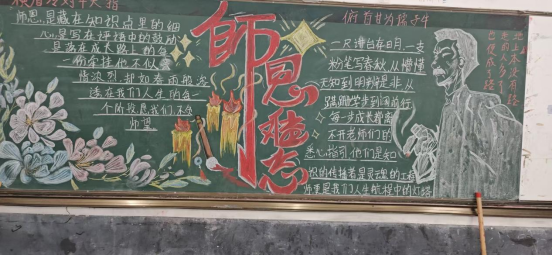 横眉冷对千夫指
师恩,是藏在知识点里的细
心,是写在评语中的鼓励
是落在成长路上的每
一份牵挂,他不似火
情浓烈,却如春雨般滋
淌在我们人生的每
个阶段,是我们不
师恩难忘
俯首甘为孺子牛
一尺讲台存日月,一支
粉笔写春秋,从懵懂
无知到明辨是非,从
蹒跚学步到阔步前行
每一步成长都离
不开老师们的
悉心指引,他们是知
识的传播者是灵魂的工程
师更是我们人生航程中的灯塔
地上本没有路
走的人多了
也便成了路